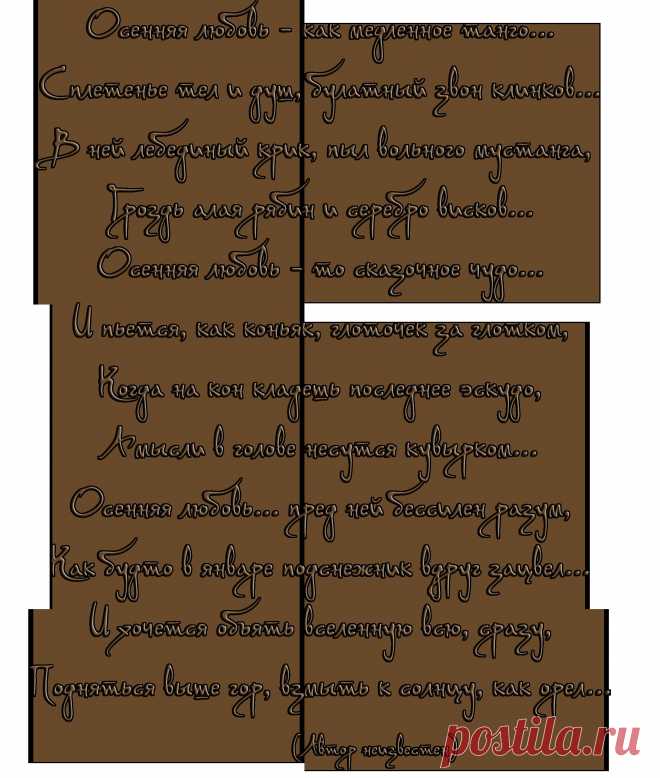 Осенняя любовь – как медленное танго...
Сплетенье тел и душ, булатный звон клинков...
В ней лебединый крик, пыл вольного мустанга,
Гроздь алая рябин и серебро висков...
Осенняя любовь – то сказочное чудо...
И пьется, как коньяк, глоточек за глотком,
Когда на кон кладешь последнее эскудо,
А мысли в голове несутся кувырком...
Осенняя любовь... пред ней бессилен разум,
Как будто в январе подснежник вдруг зацвел...
И хочется объять вселенную всю, сразу,
Подняться выше гор, взмыть к солнцу, как орел...
(Автор неизвестен)
postila.ru